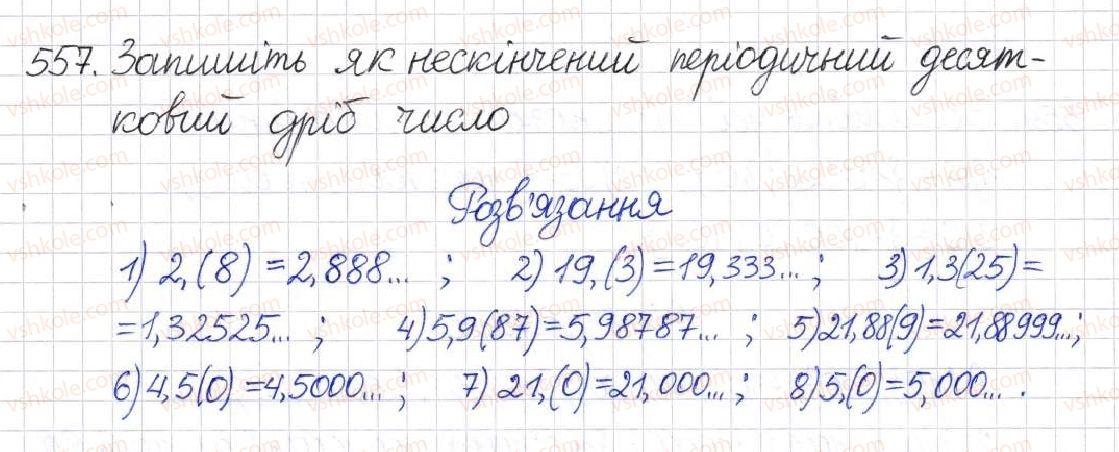 557. Запишіть як нескінчений періодичний десят-
ковий дріб число
Розв'язання
1) 2,(8) = 2,888... ; 2) 19,(3) = 19,333... ; 3) 1,3(25) =
= 1,32525... ; 4) 5,9(87) = 5,98787... ; 5) 21,88(9) = 21,88999...;
6) 4,5(0) = 4,5000... ; 7) 21,(0) = 21,000... ; 8) 5,(0) = 5,000... .